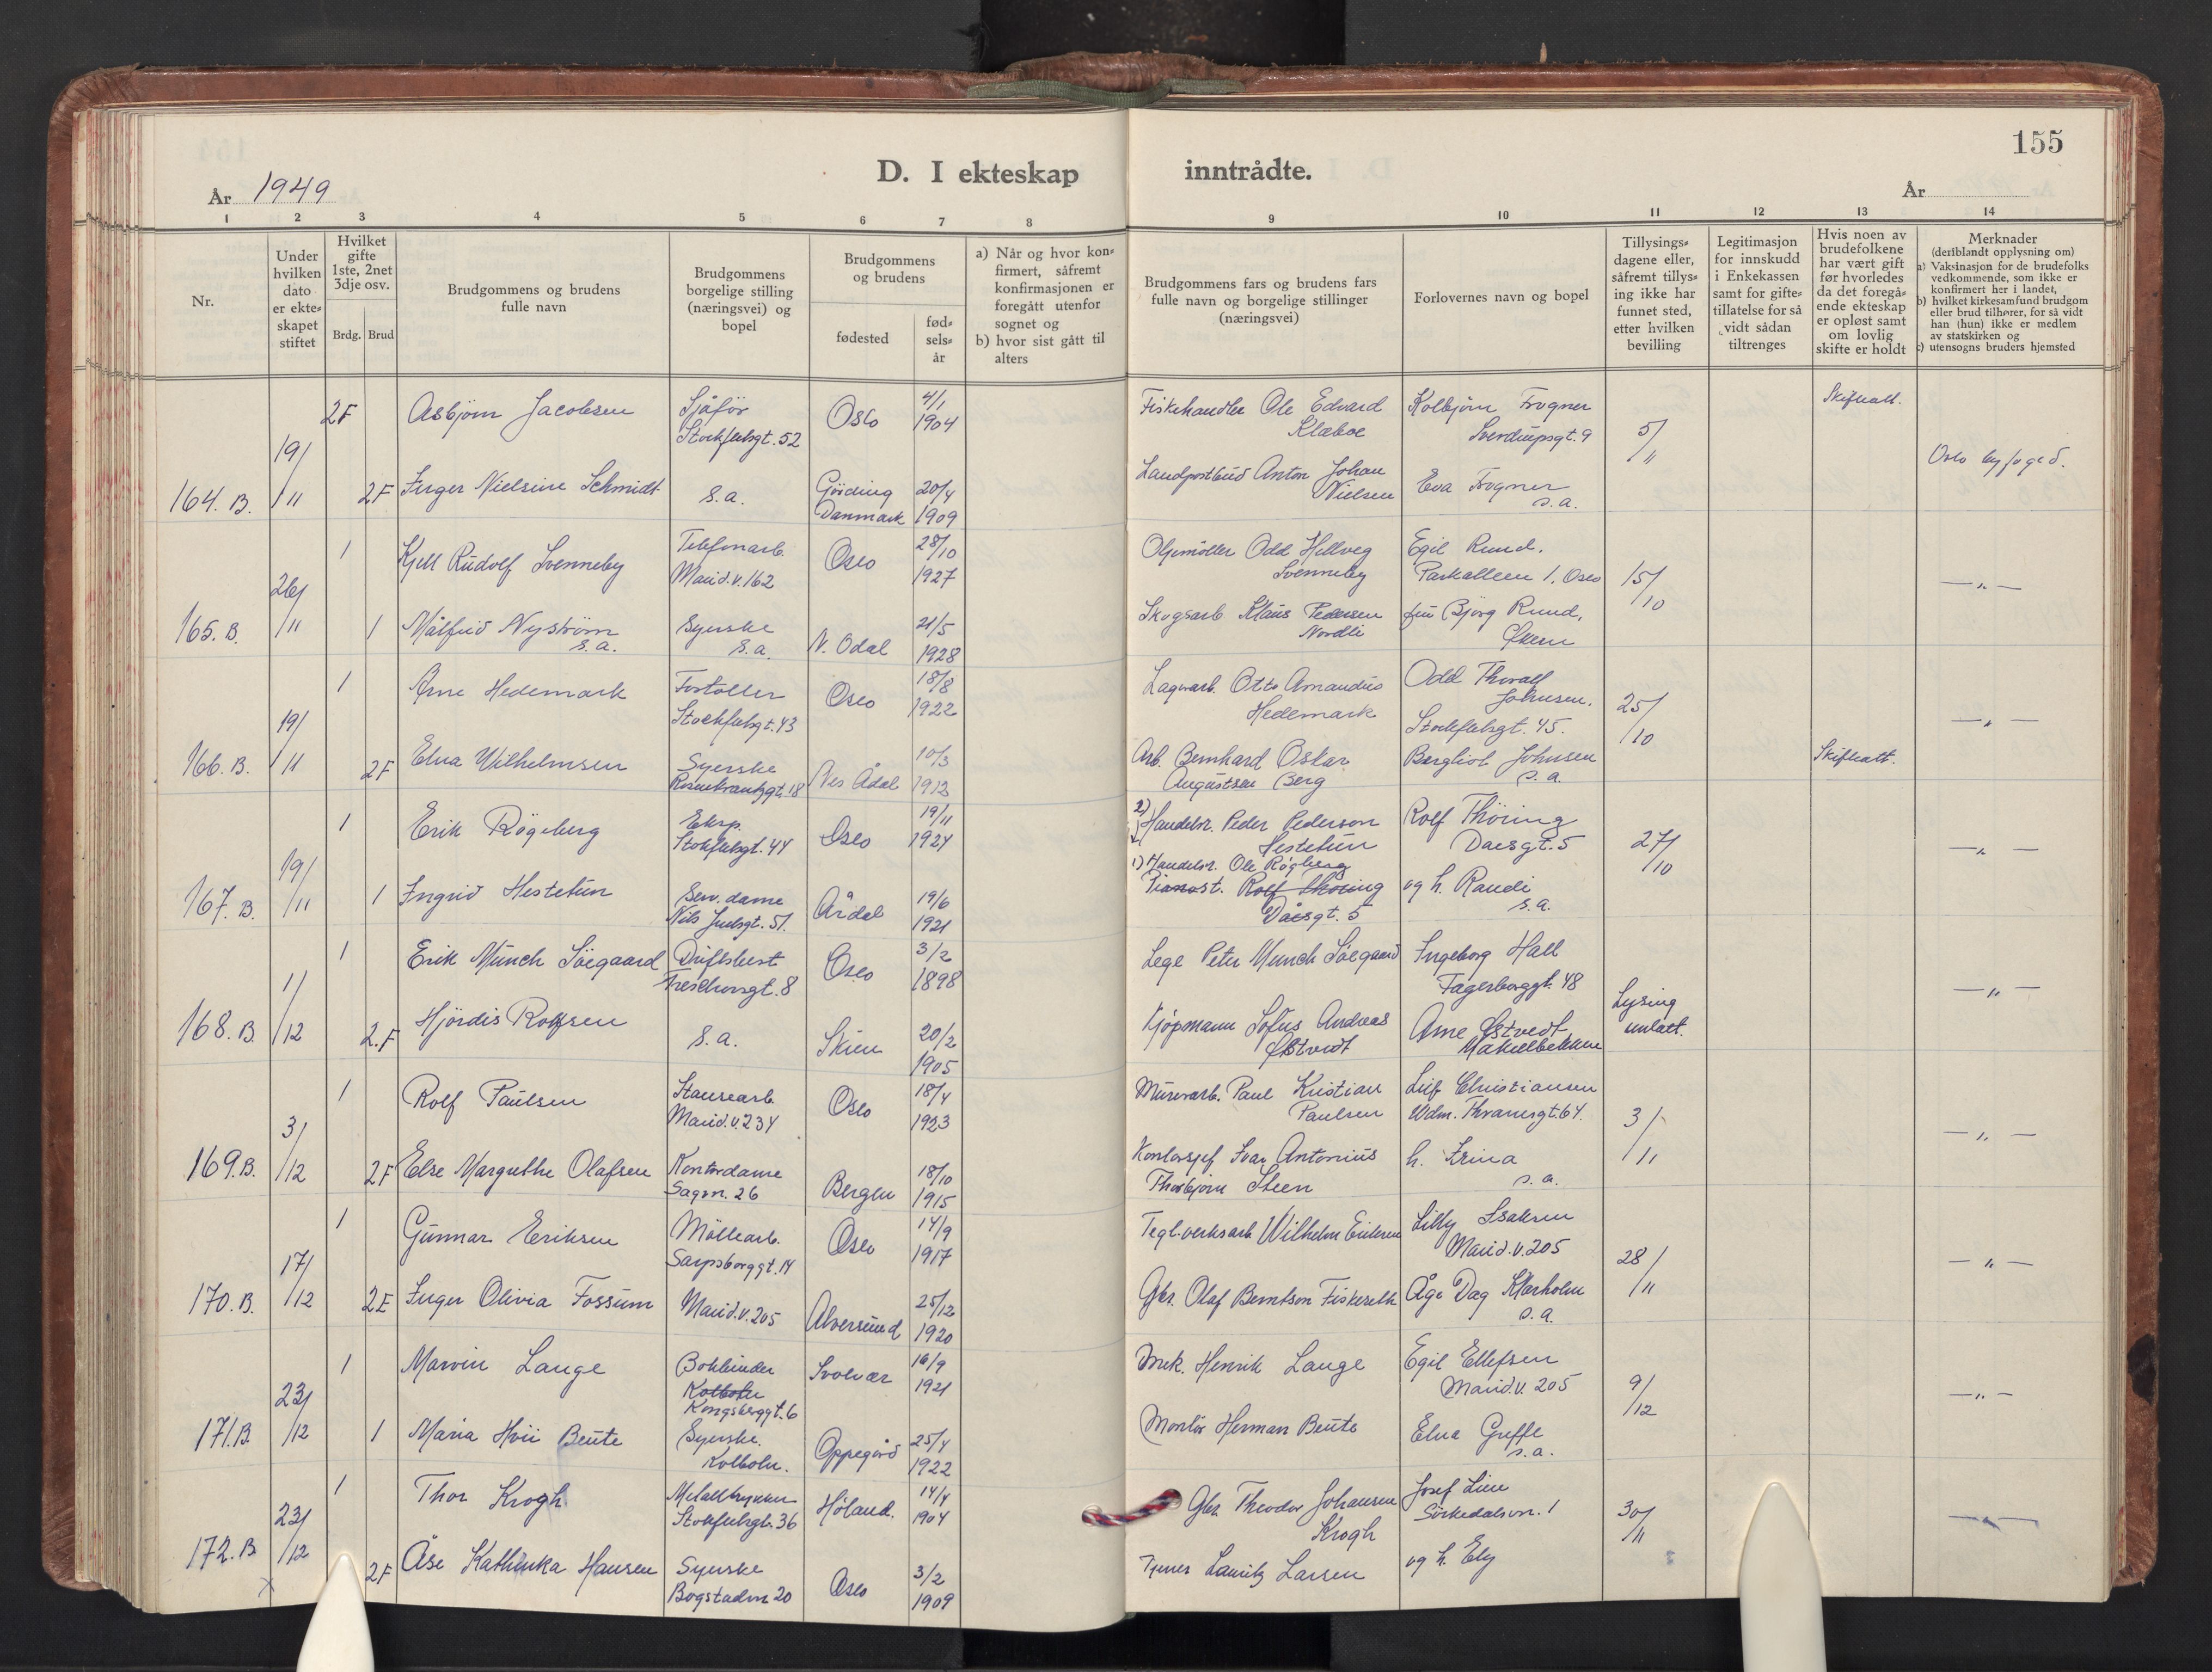 155
D. I ekteskap inntrådte.
År 1949
År
1 2 3 4 5 6 7 8 9 10 11 12 13 14
Nr.
Under hvilken dato er ekte= skapet stiftet
Hvilket gifte 1ste, 2net 3dje osv.
Brdg. Brud
Brudgommens og brudens fulle navn
Brudgommens borgelige stilling (næringsvei) og bopel
Brudgommens og brudens
fødested
fød= sels= år
a) Når og hvor kon= firmert, såfremt konfirmasjonen er foregått utenfor sognet og
b) hvor sist gått til alters
Brudgommens fars og brudens fars fulle navn og borgelige stillinger (næringsvei)
Forlovernes navn og bopel
Tillysings= dagene eller, såfremt tillys= ing ikke har funnet sted, etter hvilken bevilling
Legitimasjon for innskudd i Enkekassen samt for gifte= tillatelse for så vidt sådan tiltrenges
Hvis noen av brudefolkene har vært gift før hvorledes da det foregå= ende ekteskap er opløst samt om lovlig skifte er holdt
Merknader (deriblandt opplysning om)
a) Vaksinasjon for de brudefolks vedkommende, som ikke er konfirmert her i landet,
b) hvilket kirkesamfund brudgom eller brud tilhører, for så vidt han (hun) ikke er medlem av statskirken og
c) utensogns bruders hjemsted
164. B. 19/11
2F Asbjørn Jacobsen Sjåför Stockfletsgt. 52 Oslo 4/1 1904
Fiskehandler Ole Edvard Klæboe
Kolbjörn Frogner Sverdrupsgt. 9
5/11
Skifteatt.
Oslo byfoged.
2F Inger Nielsine Schmidt s.a. Görding Danmark 20/4 1909
Landpostbud Anton Johan Nielsen
Eva Frogner s.a.
165. B. 26/11
1 Kjell Rudolf Svenneby Telefonarb. Marid.v. 162 Oslo 28/10 1927
Oljemöller Odd Hellveg Svenneby
Egil Ruud. Parkalleen 1. Oslo
15/10
— " —
1 Målfrid Nyström s.a. Syerske s.a. N. Odal 21/5 1928
Skogsarb. Klaus Pedersen Nordli
fru Björg Ruud, Økern
166. B. 19/11
1 Arne Hedemark Stockfletsgt. 43 Oslo 18/8 1922
Lagerarb. Otto Amandus Hedemark
Odd Thoralf Johnsen. Stockfletsgt. 45.
25/10
— " —
2F Elna Wilhelmsen Syerske Rosenkrantzgt. 18 Nes Ådal 10/3 1913
Arb. Bernhard Oskar Augustsen Berg
Bergliot Johnsen s.a.
Skifteatt.
167. B. 19/11
1 Erik Rögeberg Eksp. Stokfletsgt. 44 Oslo 19/11 1924
2) Handelsr. Peder Pederson Hestetun
1) Handelsr. Ole Rögeberg
Rolf Thöring Daasgt. 5
27/10
— " —
1 Ingrid Hestetun Serv. dame Nils Juelsgt. 51. Årdal 19/6 1921
Pianost. Rolf Thöring Daasgt. 5
og h. Randi s.a.
168. B. 1/12
1 Erik Münch Söegaard Driftsbest. Treschowsgt. 8 Oslo 3/2 1898
Lege Peter Munch Söegaard
Ingeborg Hall Fagerborggt. 48
Lysing unlatt.
— " —
2.F Hjördis Rolfsen s.a. Skien 20/2 1905
Kjöpmann Sofus Andreas Østvedt
Arne Østvedt Makrellbekken
169. B. 3/12
1 Rolf Paulsen Stansearb. Marid.v. 234 Oslo 18/4 1923
Murerarb. Paul Kristian Paulsen
Leif Christiansen Wdm. Thranesgt. 64.
3/11
— " —
2F Else Margrethe Olafsen Kontordame Sagvn. 26 Bergen 18/10 1915
Kontorsjef Ivar Antonius Thorbjörn Steen
h. Irina s.a.
170. B. 17/12
1 Gunnar Eriksen Möllearb. Sarpsborggt. 14 Oslo 14/9 1917
Teglverksarb Wilhelm Eriksen
Lilly Isaksen Marid.v. 205
28/11
— " —
2E Inger Olivia Fossum Marid.v. 205 Alversund 25/12 1920
Gbr. Olaf Berntson Fiskeseth
Åge Dag Klarholm s.a.
171. B. 23/12
1 Marvin Lange Bokbinder Kolbotn Kongsberggt. 6 Svolvær 16/9 1921
Mek. Henrik Lange
Egil Ellefsen Marid.v. 205
9/12
— " —
1 Maria Hvii Beute Syerske. Kolbotn. Oppegård 25/4 1922
Montör Herman Beute
Elna Greffe s.a.
172. B 23/12
1 Thor Krogh Metalltrykker Stokfletsgt. 36 Höland. 14/4 1904
Gbr. Theodor Johansen Krogh
Josef Lien Sörkedalsvn. 1
30/11
— " —
2F Åse Kathinka Hansen Syerske Bogstadvn 20 Oslo 3/2 1909
Lauritz Larsen
og h. Ely
x